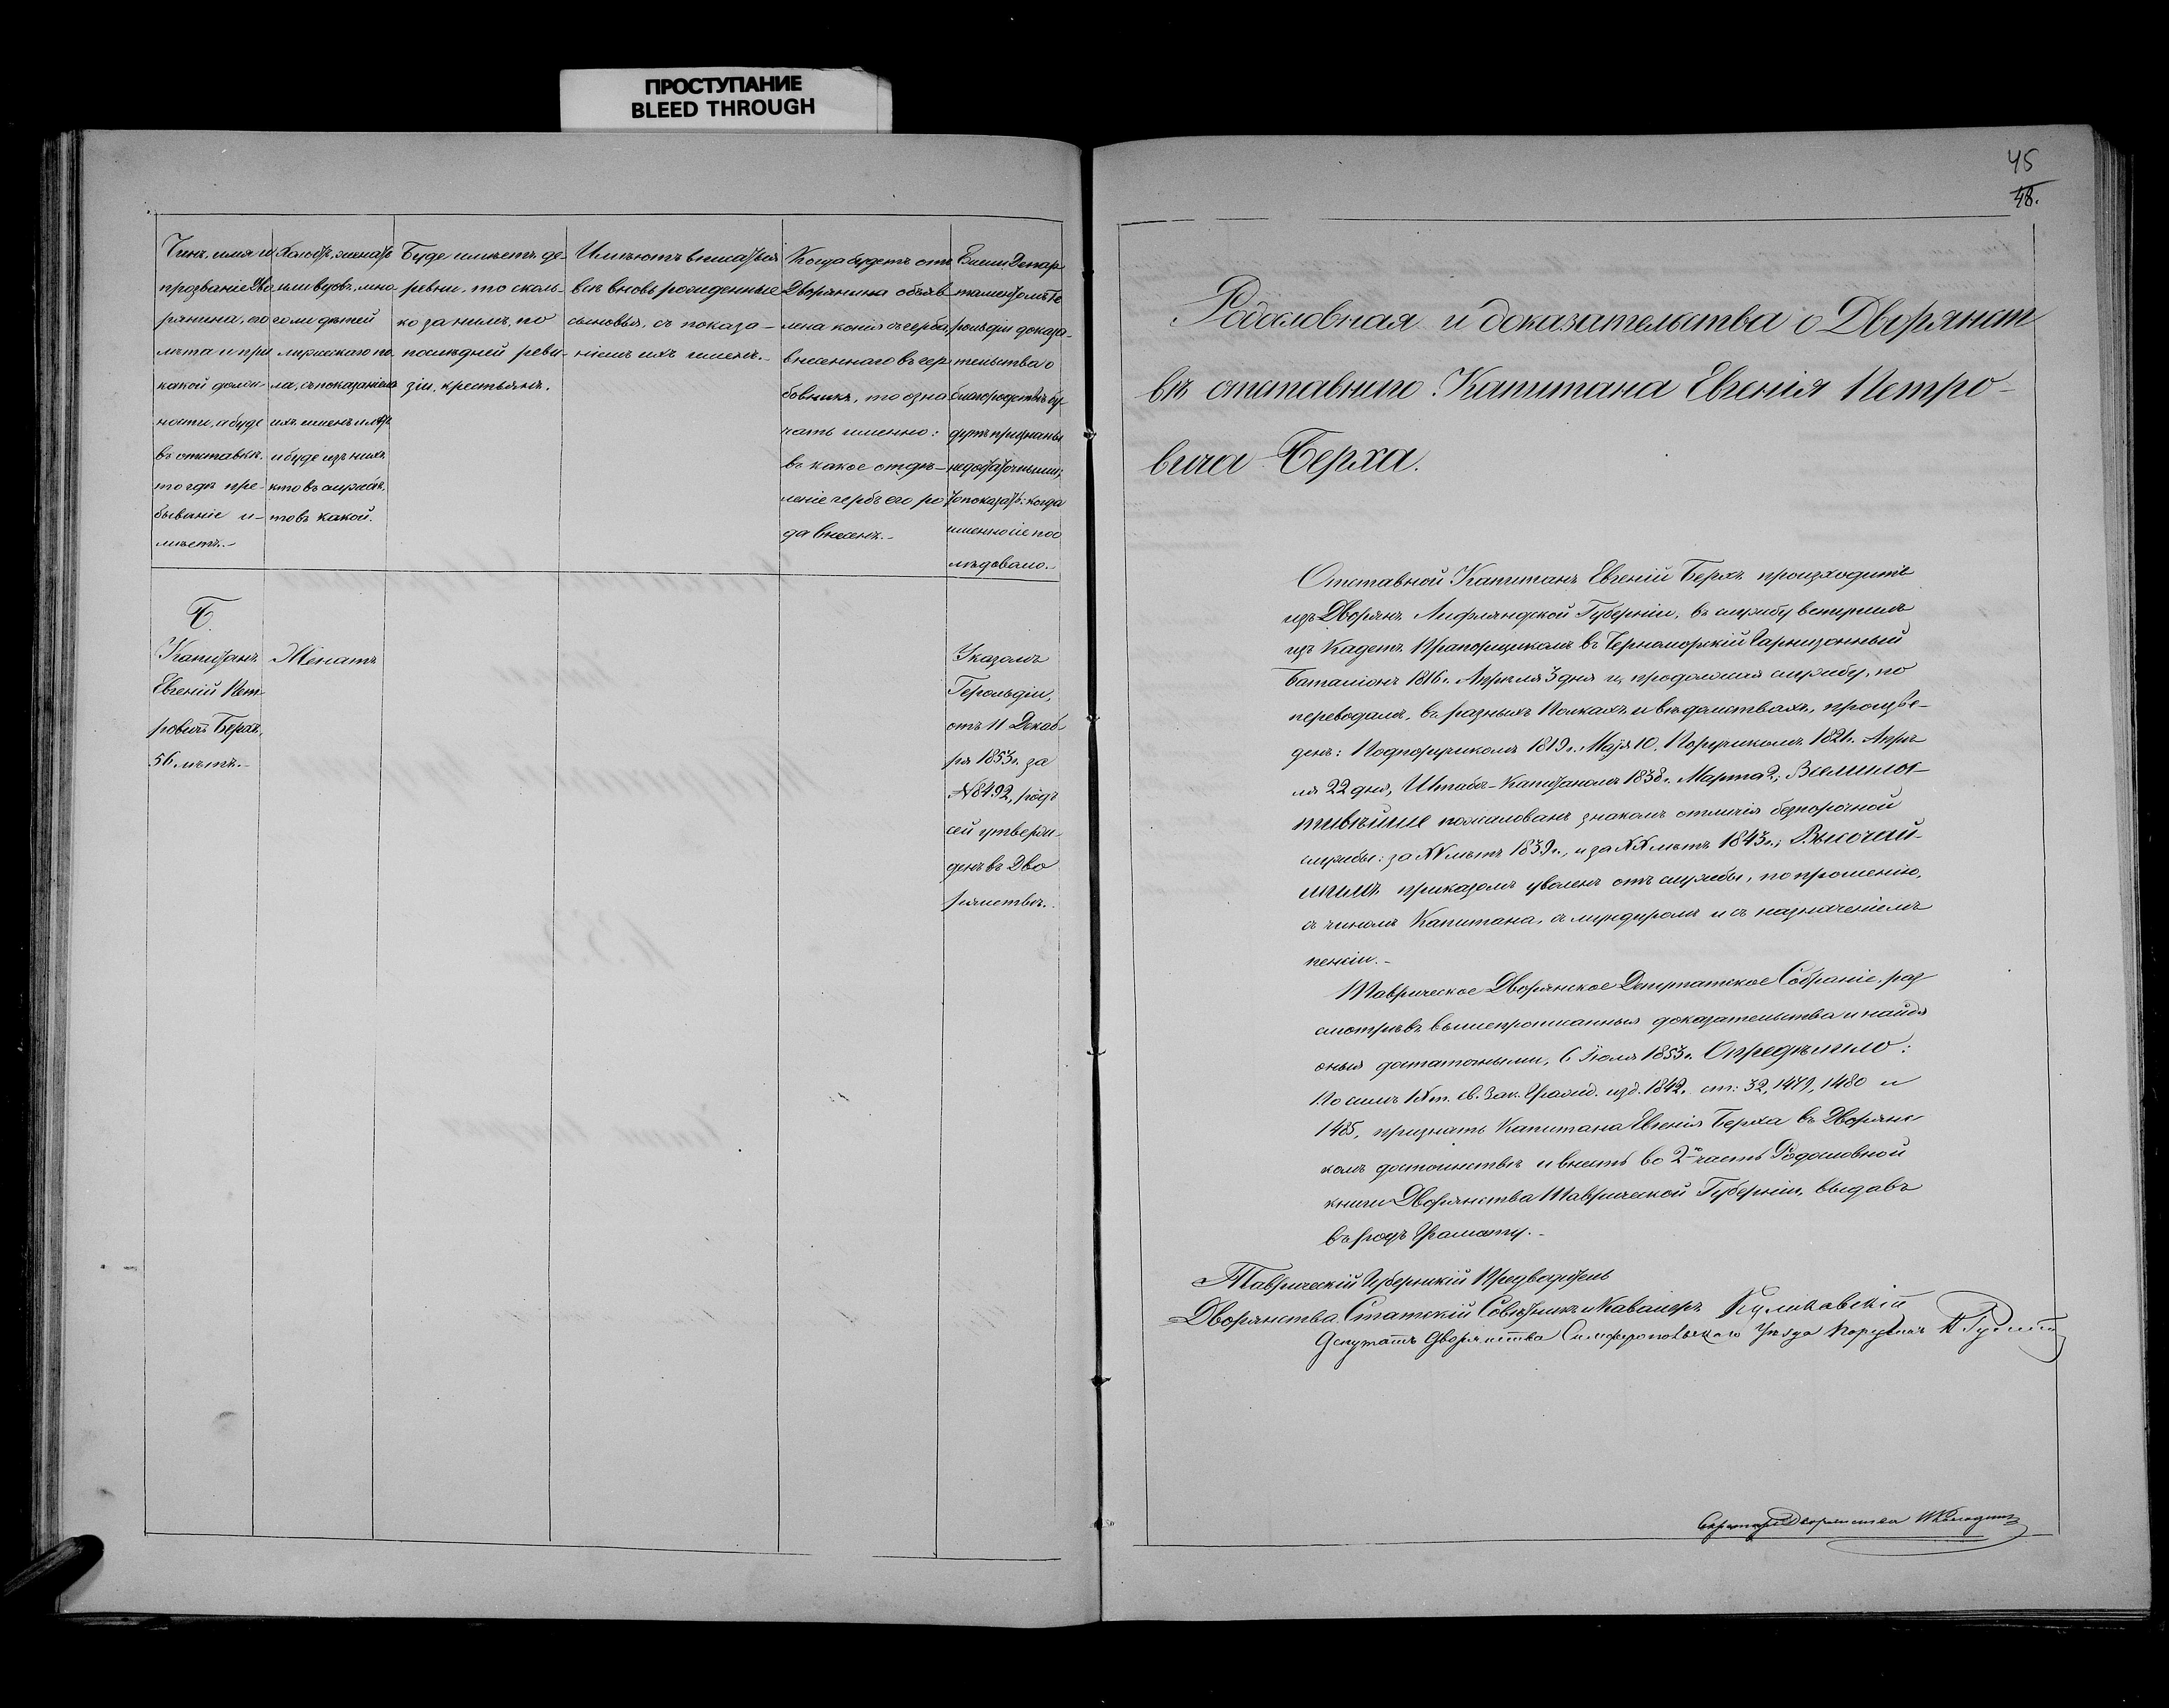 ПРОСТУПАНИЕ
BLEED THROUGH
Чинъ, имя и
прозваніе Дво
рянина, его
лѣта и при
какой долж-
ности, а буде
въ отставкѣ,
то гдѣ пре-
бываніе и-
мѣетъ.-
Холостъ, женатъ
или вдовъ, мно
го ли дѣтей
мужескаго по
ла, съ показаніемъ
ихъ именъ и лѣтъ
и буде изъ нихъ
кто въ службѣ,
то въ какой.
Буде имѣетъ де-
ревни, то сколь-
ко за нимъ, по
послѣдней реви-
зіи, крестьянъ.
Имѣютъ вписаться
всѣ вновь рожденные
сыновья, съ показа-
ніемъ ихъ именъ.-
Когда будетъ отъ
Дворянина объяв-
лена копія съ герба,
внесеннаго въ гер
бовникъ, то озна
чать именно:
въ какое отдѣ-
леніе гербъ его ро
да внесенъ.-
Ежели Депар
таментомъ Ге
рольдіи доказа-
тельства о
благородствѣ бу-
дутъ признаны
недостаточными,
то показать: когда
именно сіе пос
лѣдовало.-
Б.
Капитанъ
Евгеній Пет-
ровичъ Берхъ,
56 лѣтъ.-
Женатъ
Указомъ
Герольдіи,
отъ 11 Декаб-
ря 1853г. за
№8492, родъ
сей утверж-
денъ въ Дво
рянствѣ.-
45
48.
Родословная и доказательства о Дворянст
вѣ отставнаго Капитана Евгенія Петро-
вича Берха.
Отставной Капитанъ Евгеній Берхъ произходитъ
изъ Дворянъ Лифляндской Губерніи, въ службу вступилъ
изъ Кадетъ Прапорщикомъ въ Черноморскій Гарнизонный
баталіонъ 1816г. Апрѣля 3 дня и, продолжая службу, по
переводамъ, въ разныхъ Полкахъ и вѣдомствахъ, произве-
денъ: Подпоручикомъ 1819г. Маія 10, Поручикомъ 1821г. Апрѣ
ля 22 дня, Штабсъ-Капитаномъ 1838г. Марта 2; Всемилос-
тивѣйше пожалованъ знакомъ отличія безпорочной
службы: за XV лѣтъ 1839г., и за XX лѣтъ 1843г.; Высочай-
шимъ приказомъ уволенъ отъ службы, по прошенію,
съ чиномъ Капитана, съ мундиромъ и съ назначеніемъ
пенсіи.-
Таврическое Дворянское Депутатское Собраніе, раз
смотрѣвъ вышепрописанныя доказательства и найдя
оныя достаточными, 6 Іюля 1853г. Опредѣлило:
По силѣ IXт. Св. Зак. Гражд. изд. 1842г. ст: 32, 1479, 1480 и
1485, признать Капитана Евгенія Берха въ Дворянс
комъ достоинствѣ и внесть во 2ю часть Родословной
книги Дворянства Таврической Губерніи, выдавъ
въ родъ Грамоту.-
Таврическій Губернскій Предводитель
Дворянства, Статскій Совѣтникъ и Кавалеръ Куликовскій
Депутатъ Дворянства Симферопольскаго Уѣзда Поручикъ
Секретарь Дворянства